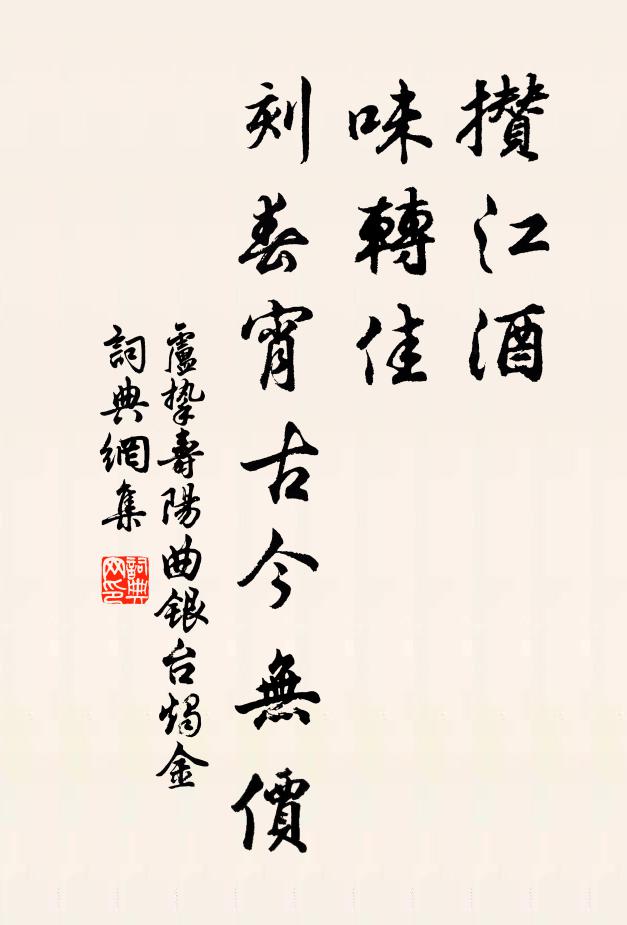 攢江酒
味轉佳
刻春宵古今無價
盧摯壽陽曲銀台燭金
詞典網集
詞典网印